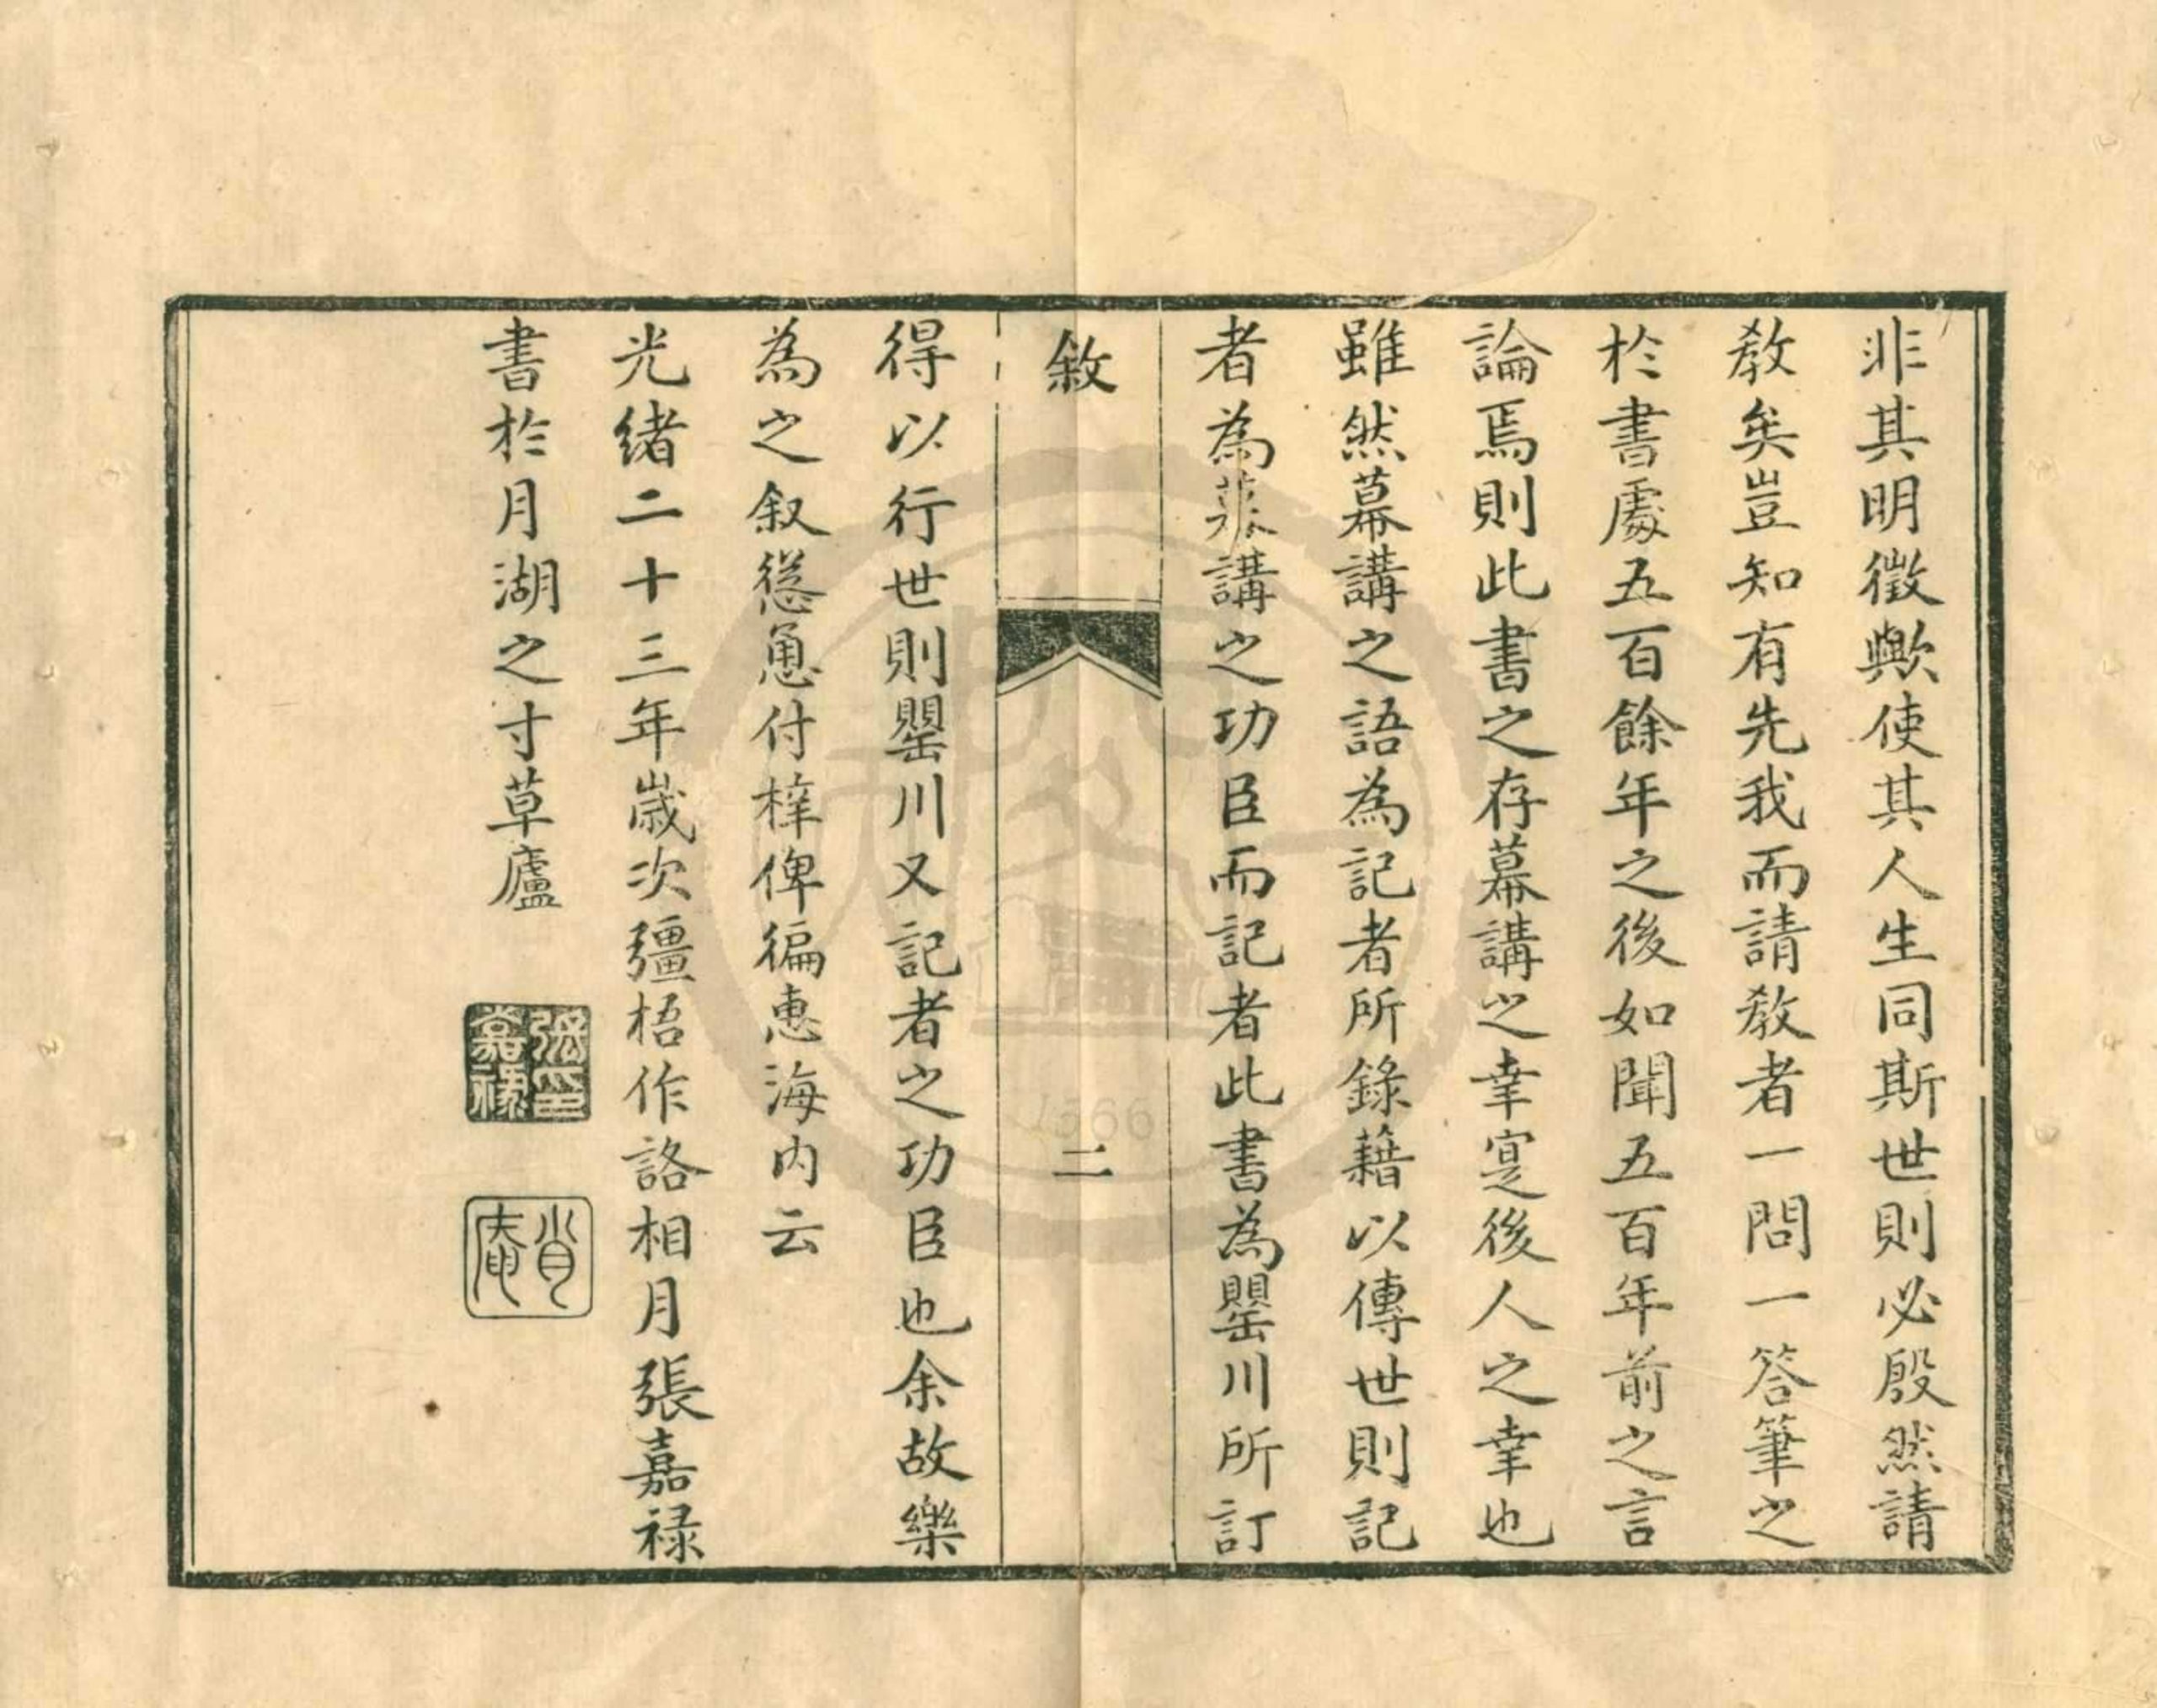 非其明徵歟使其人生同斯世則必殷然請
教矣豈知有先我而請教者一問一答筆之
於書處五百餘年之後如聞五百年前之言
論焉則此書之存幕講之幸寔後人之幸也
雖然幕講之語為記者所錄藉以傳世則記
者為幕講之功臣而記者此書為罌川所訂
敘
二
得以行世則罌川又記者之功臣也余故樂
為之叙慫恿付梓俾徧惠海內云
光緒二十三年歲次彊梧作詻相月張嘉祿
書於月湖之寸草廬
張嘉祿印
肖庵
1566